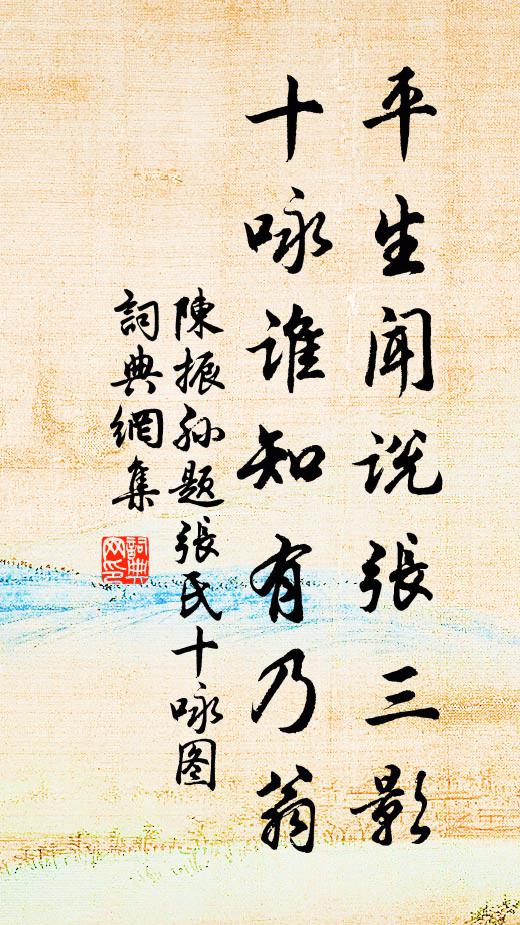 平生聞说張三影
十咏谁知有乃翁
陳振孙题張氏十咏图
詞典網集
詞典网印